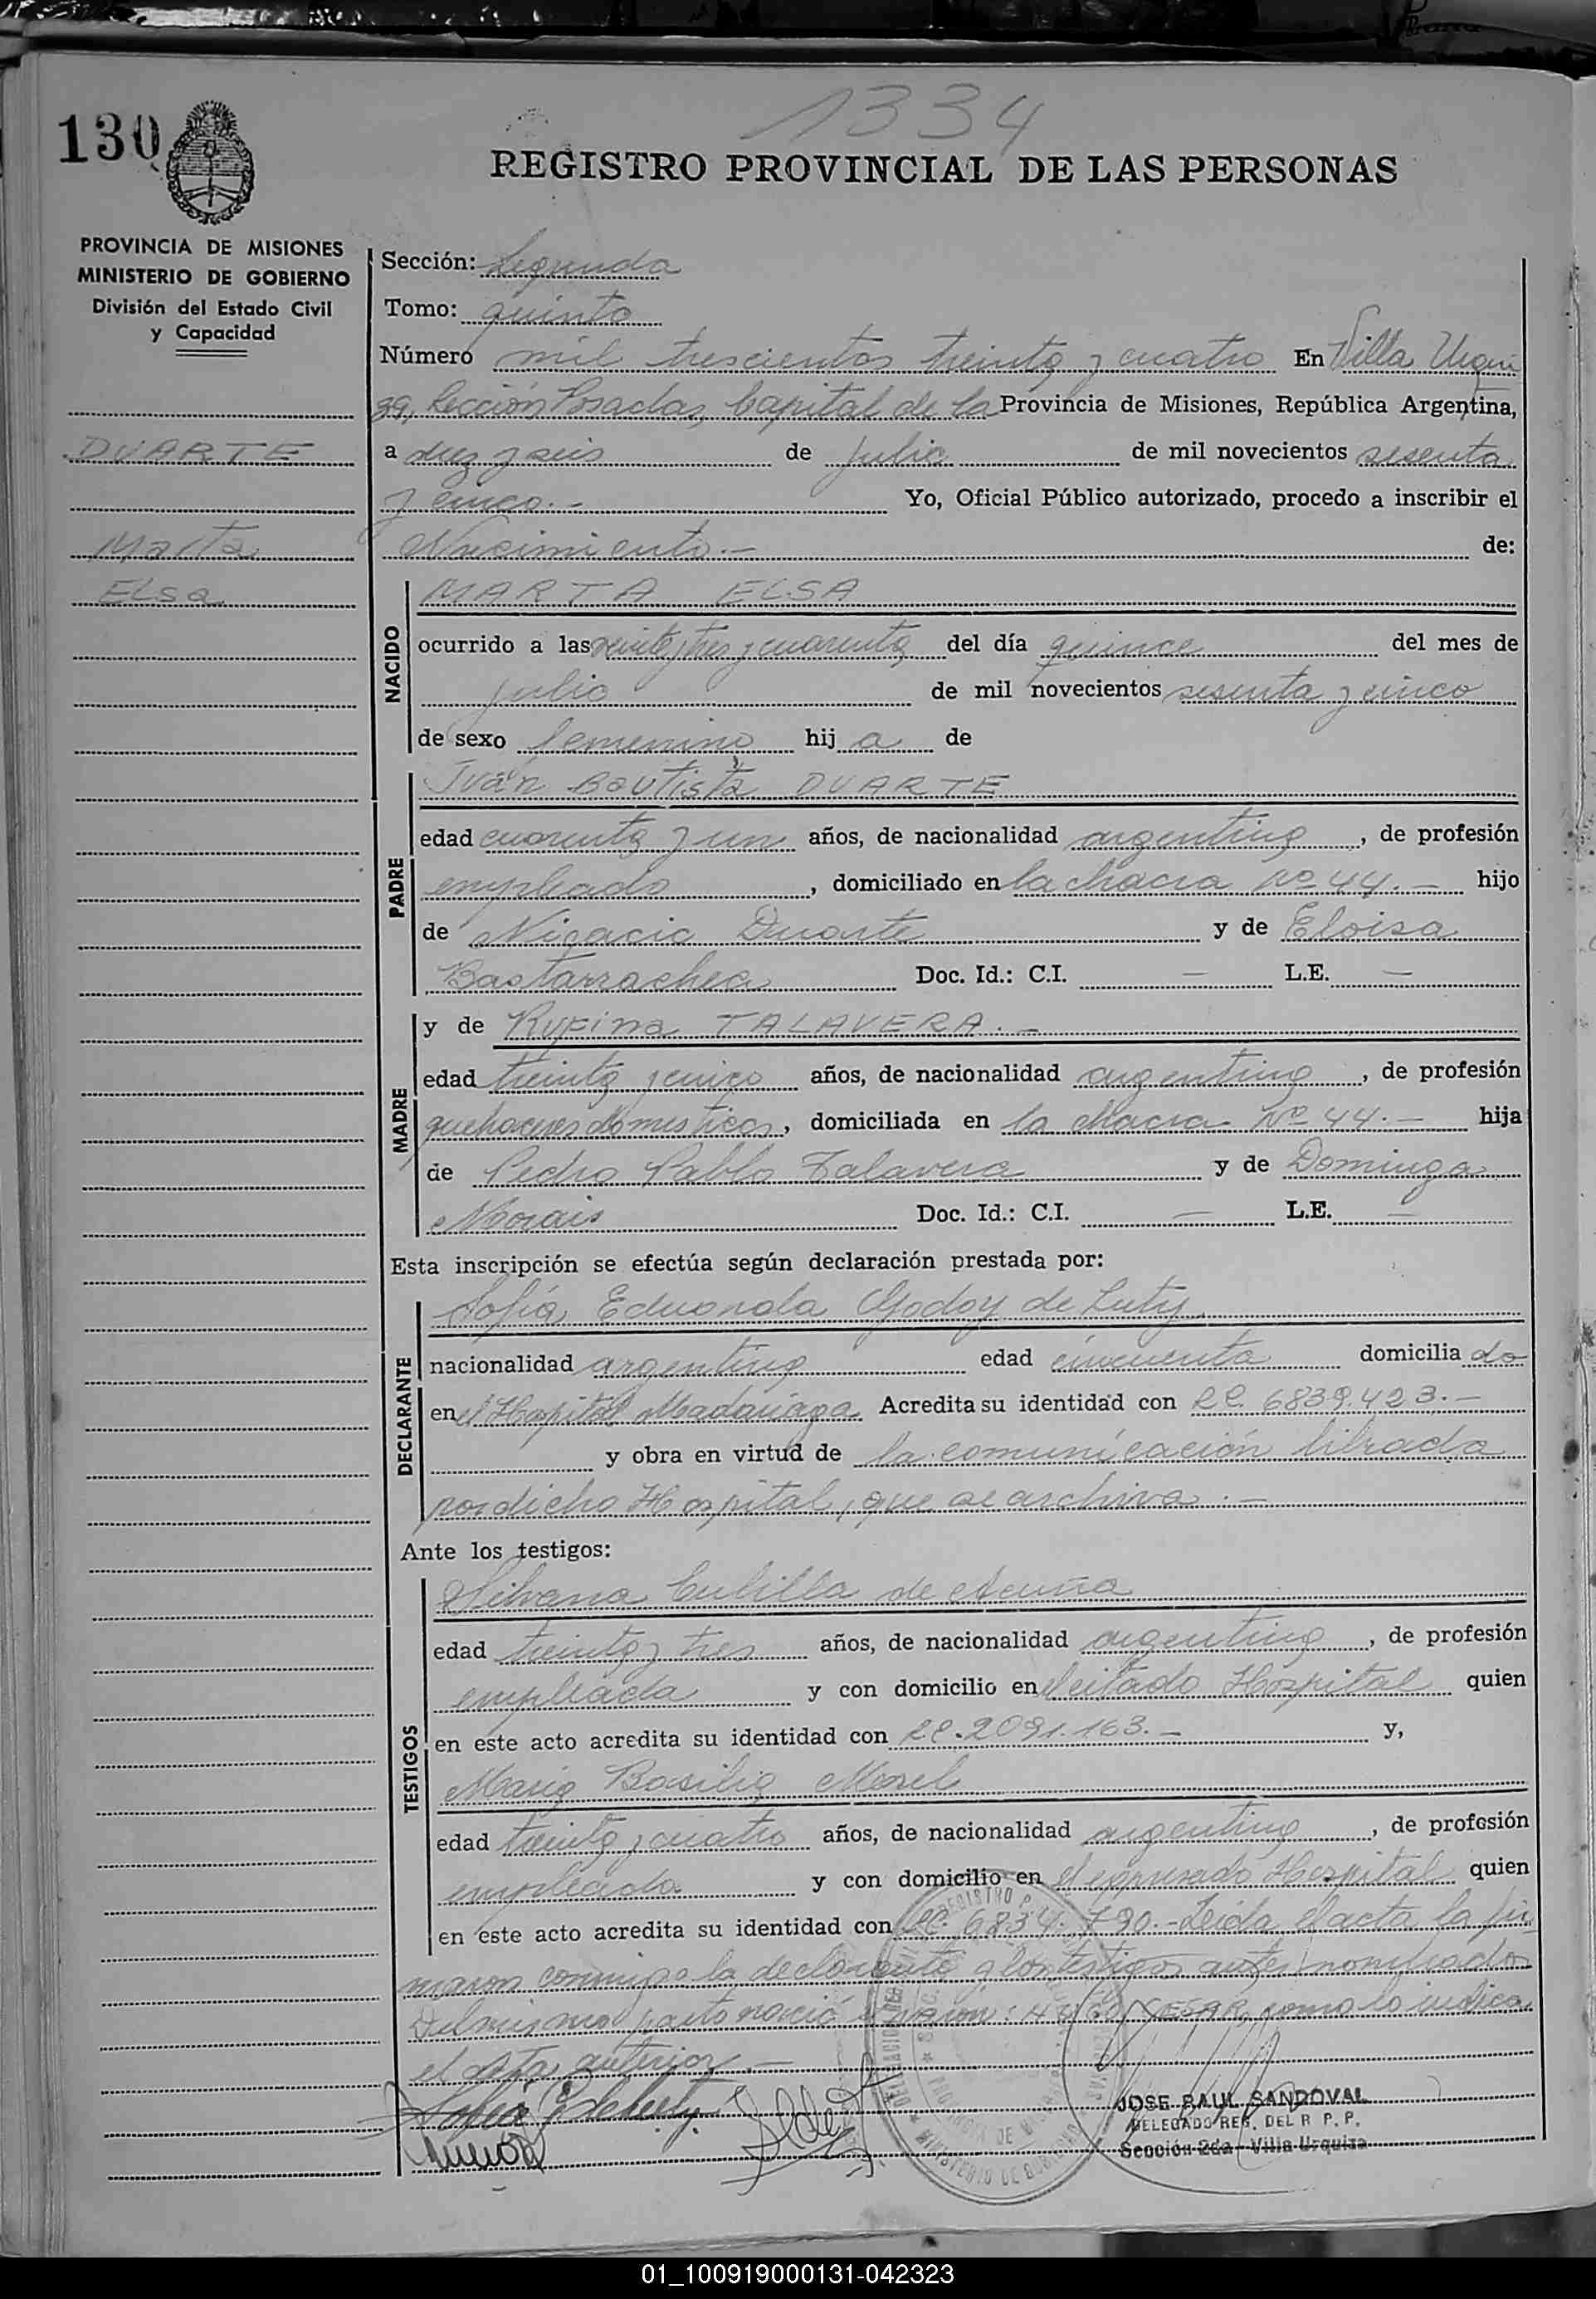 1334
130
REGISTRO PROVINCIAL DE LAS PERSONAS
PROVINCIA DE MISIONES
MINISTERIO DE GOBIERNO
División del Estado Civil
y Capacidad
DUARTE
Marta
Elsa
Sección: Segunda
Tomo: quinto
Número mil trescientos treinta y cuatro En Villa Urqui
za, Sección Posadas, Capital de la Provincia de Misiones, República Argentina,
a diez y seis de julio de mil novecientos sesenta
y cinco.- Yo, Oficial Público autorizado, procedo a inscribir el
Nacimiento.- de:
NACIDO
MARTA ELSA
ocurrido a las veinte y tres y cuarenta del día quince del mes de
julio de mil novecientos sesenta y cinco
de sexo femenino hij a de
PADRE
Juan Bautista DUARTE
edad cuarenta y un años, de nacionalidad argentina, de profesión
empleado, domiciliado en la chacra Nº 44.- hijo
de Nicacio Duarte y de Eloisa
Bastarrachea Doc. Id.: C.I. — L.E. —
MADRE
y de Rufina TALAVERA.-
edad treinta y cinco años, de nacionalidad argentina, de profesión
quehaceres domesticos, domiciliada en la chacra Nº 44.- hija
de Pedro Pablo Talavera y de Dominga
Morais Doc. Id.: C.I. — L.E. —
Esta inscripción se efectúa según declaración prestada por:
DECLARANTE
Sofía Eduarda Godoy de Luty
nacionalidad argentina edad cincuenta domicilia do
en el Hospital Madariaga Acredita su identidad con LC. 6839.423.-
y obra en virtud de la comunicación librada
por dicho Hospital, que se archiva.-
Ante los testigos:
TESTIGOS
Silvana Cubilla de Acuña
edad treinta y tres años, de nacionalidad argentina, de profesión
empleada y con domicilio en el citado Hospital quien
en este acto acredita su identidad con LC. 2091.163.- y,
María Basilia Morel
edad treinta y cuatro años, de nacionalidad argentina, de profesión
empleada y con domicilio en el expresado Hospital quien
en este acto acredita su identidad con LC. 6834.790.- Leida el acta la fir
maron conmigo la declarante y los testigos antes nombrados
Del mismo parto nació el varon: HUGO CESAR, como lo indica
el acta anterior.-
JOSE RAUL SANDOVAL
DELEGADO REG. DEL R. P. P.
Sección 2da - Villa Urquiza
MINISTERIO DE GOBIERNO
01_100919000131-042323